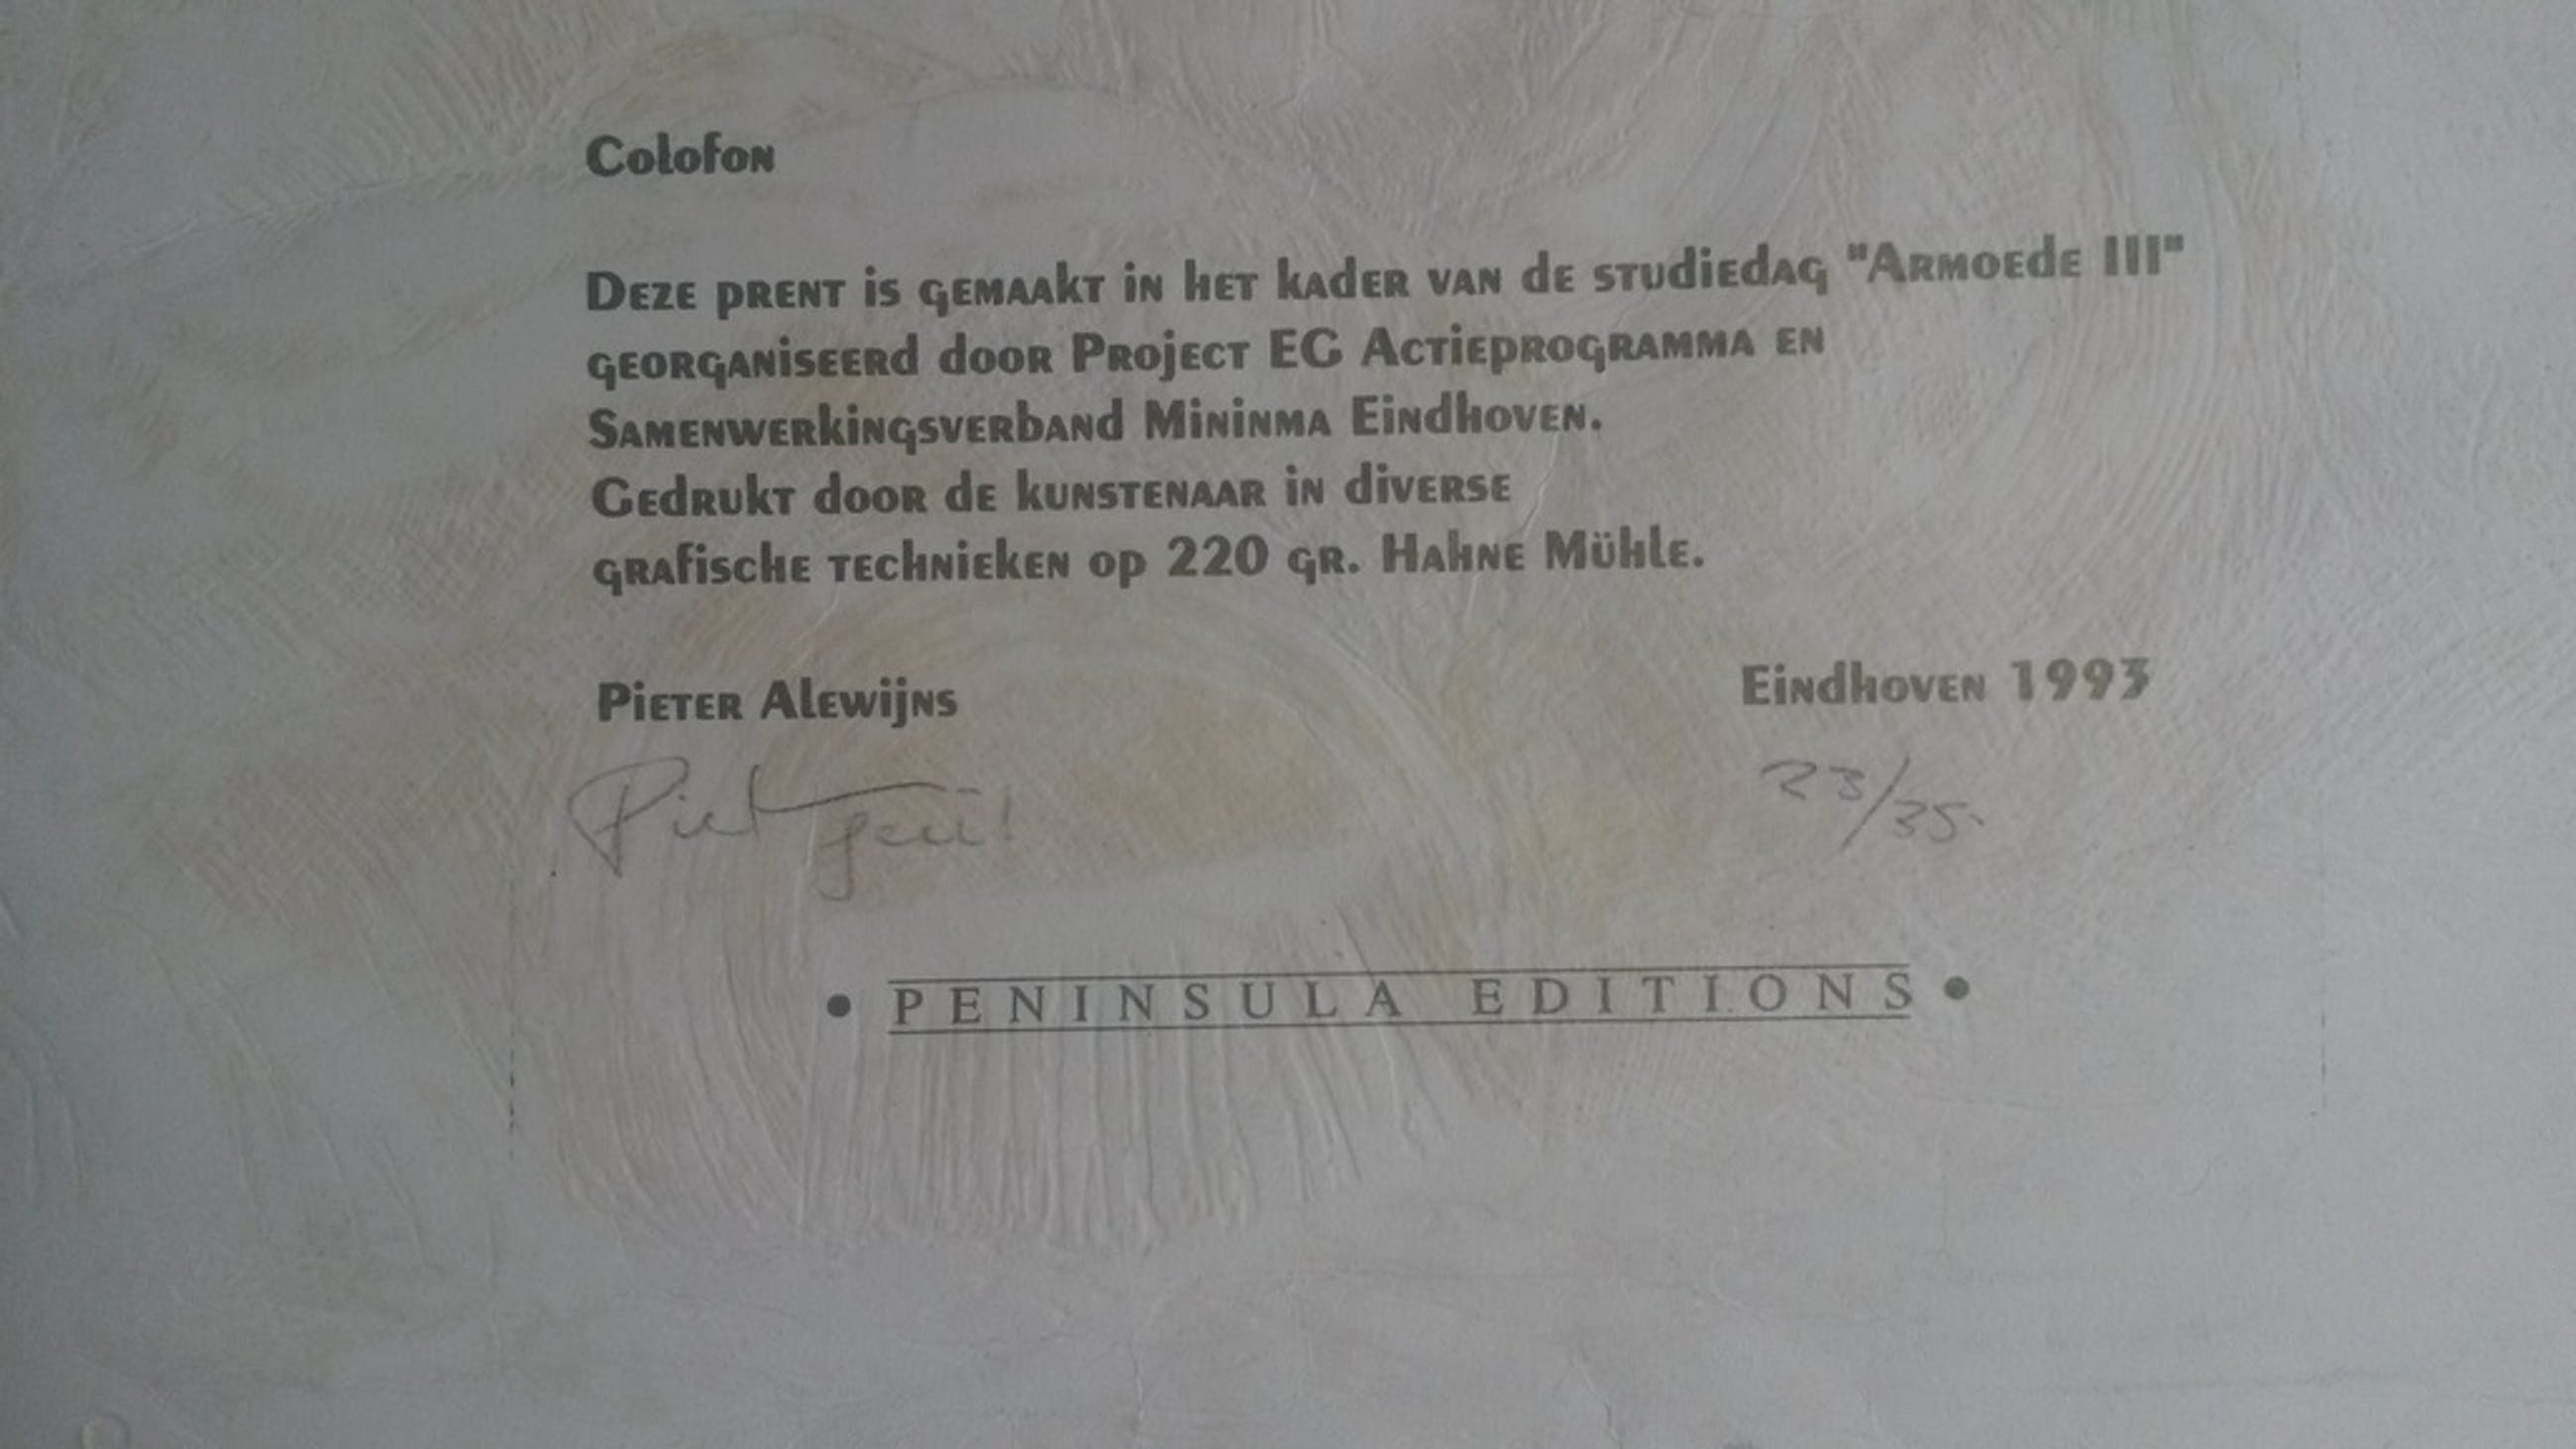 Colofon
Deze prent is gemaakt in het kader van de studiedag "Armoede III"
georganiseerd door Project EG Actieprogramma en
Samenwerkingsverband Mininma Eindhoven.
Gedrukt door de kunstenaar in diverse
grafische technieken op 220 gr. Hahne Mühle.
Pieter Alewijns Eindhoven 1993
Piet 23/35.
• PENINSULA EDITIONS •